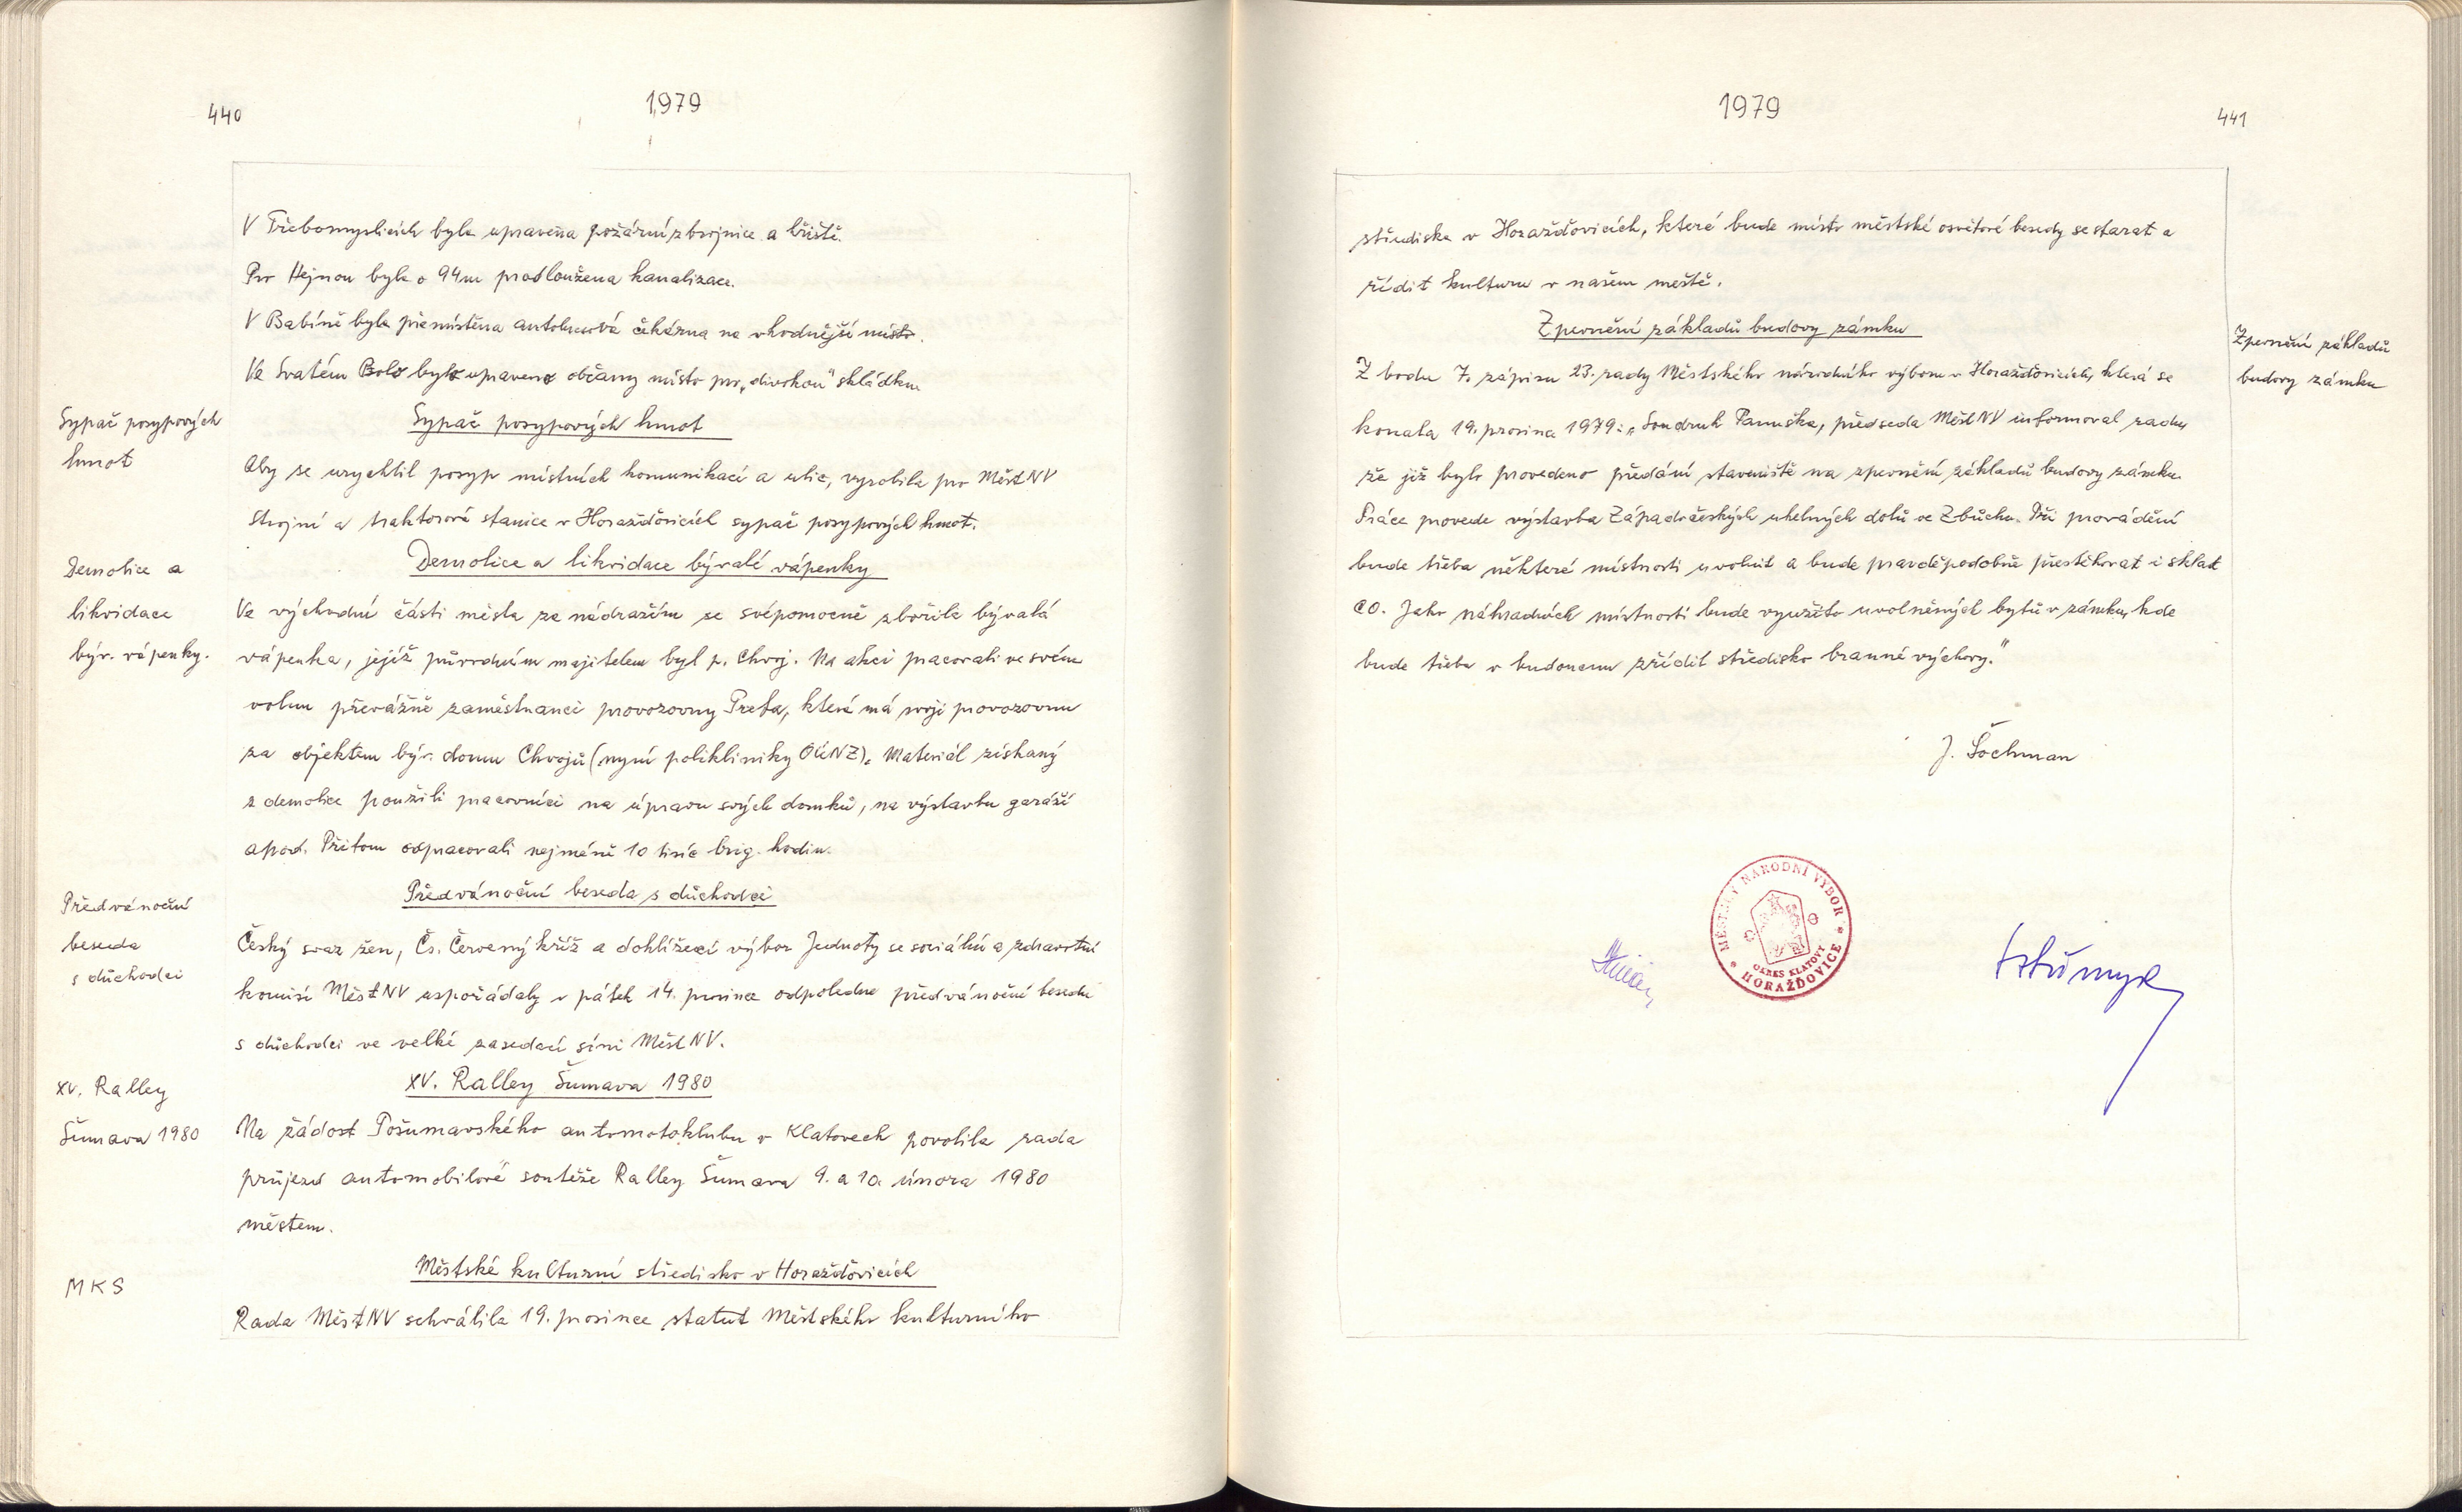 440
1979
V Třebomyslicích byla upravena požární zbrojnice a hřiště.
Pro Hejnou byla o 94m prodloužena kanalizace.
V Babíně byla přemístěna autobusová čekárna na vhodnější místo.
Ve Svatém Bole bylo upraveno občany místo pro „divokou" skládku.
Sypač posypových
hmot
Sypač posypových hmot
Aby se urychlil posyp místních komunikací a ulic, vyrobila pro MěstNV
Strojní a traktorová stanice v Horažďovicích sypač posypových hmot.
Demolice a
likvidace
býv. vápenky.
Demolice a likvidace bývalé vápenky
Ve východní části města za nádražím se svépomocně zbořila bývalá
vápenka, jejíž původním majitelem byl p. Chvoj. Na akci pracovali ve svém
volnu převážně zaměstnanci provozovny Prefa, která má svoji provozovnu
za objektem býv. domu Chvojů (nyní polikliniky OÚNZ). Materiál získaný
z demolice použili pracovníci na úpravu svých domků, na výstavbu garáží
apod. Přitom odpracovali nejméně 10 tisíc brig. hodin.
Předvánoční
beseda
s důchodci
Předvánoční beseda s důchodci
Český svaz žen, Čs. Červený kříž a dohlížecí výbor Jednoty se sociální a zdravotní
komisí MěstNV uspořádaly v pátek 14. prosince odpoledne předvánoční besedu
s důchodci ve velké zasedací síni MěstNV.
XV. Ralley
Šumava 1980
XV. Ralley Šumava 1980
Na žádost Pošumavského automotoklubu v Klatovech povolila rada
průjezd automobilové soutěže Ralley Šumava 9. a 10. února 1980
městem.
MKS
Městské kulturní středisko v Horažďovicích
Rada MěstNV schválila 19. prosince statut Městského kulturního
1979
441
střediska v Horažďovicích, které bude místo městské osvětové besedy se starat a
řídit kulturu v našem městě.
Zpevnění základů budovy zámku
Zpevnění základů
budovy zámku
Z bodu 7. zápisu 23. rady Městského národního výboru v Horažďovicích, která se
konala 19. prosince 1979: „Soudruh Panuška, předseda MěstNV informoval radu,
že již bylo provedeno předání staveniště na zpevnění základů budovy zámku.
Práce provede výstavba Západočeských uhelných dolů ve Zbůchu. Při provádění
bude třeba některé místnosti uvolnit a bude pravděpodobně přestěhovat i sklad
CO. Jako náhradních místností bude využito uvolněných bytů v zámku, kde
bude třeba v budoucnu zřídit středisko branné výchovy."
J. Šochman
MĚSTSKÝ NÁRODNÍ VÝBOR
OKRES KLATOVY
HORAŽĎOVICE